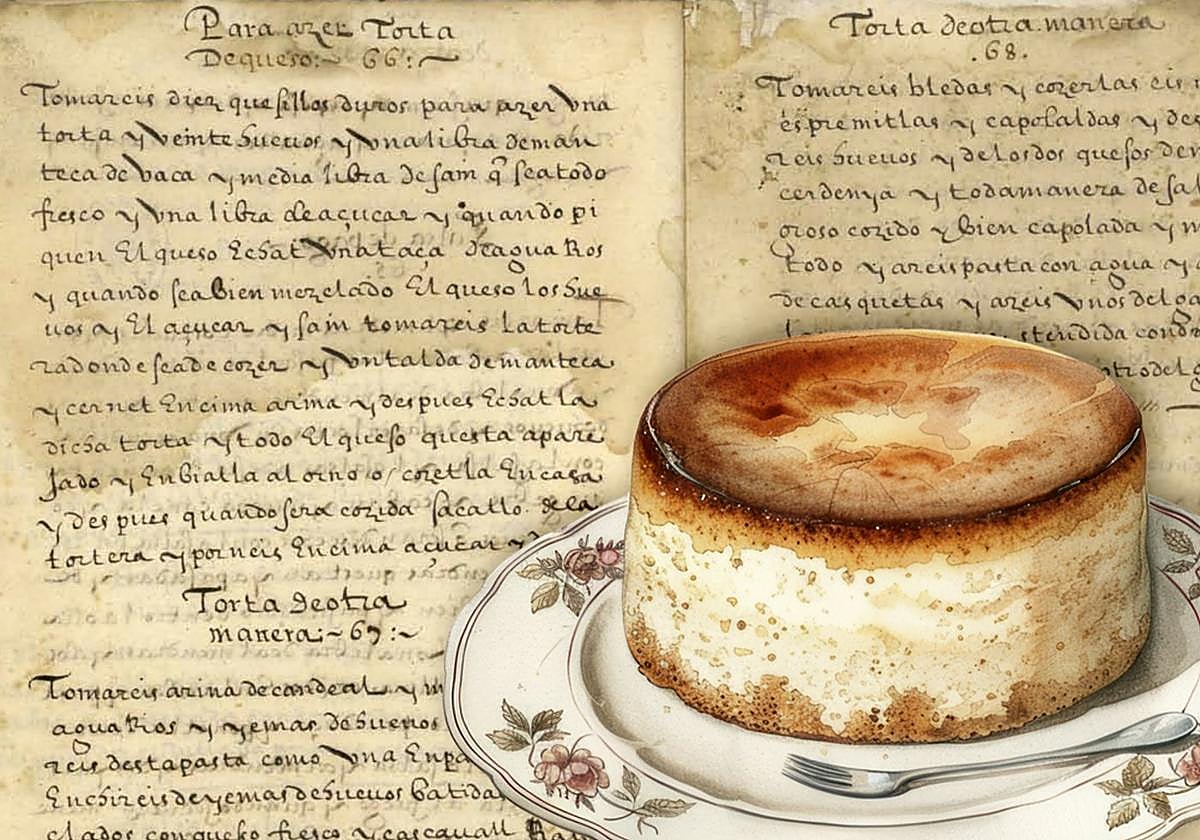 Para azer Torta
Dequeso:~ 66:~
Tomareis diez quesillos duros para azer Vna
torta y Veinte hueuos y Vna libra deman
teca de Vaca y media libra de sain q̃ sea todo
fresco y Vna libra de açucar y quando pi
quen El queso Echat Vna taça de agua Ros
y quando sea Bien mezclado El queso los hue
uos y El açucar y sain tomareis la torte
ra donde se a de cozer y Vntalda de manteca
y cernet Encima arina y despues Echat la
dicha torta y todo El queso questa apare
Jado y Enbialla al orno o/ cozetla En casa
y despues quando sera cozida sacallo de la
tortera y porneis Encima açucar y
Torta de otra
manera:~ 67:~
Tomareis arina de candeal y m
agua Ros y yemas de hueuos
reis desta pasta como Vna Enpa
Enchireis de yemas de hueuos batidas
elados con queso fresco y cascauall
Torta de otra manera
.68.
Tomareis bledas y cozerlas eis
espremitlas y capolaldas y des
reis hueuos y de los dos quesos de
cerdenya y toda manera de sal
oroso cozido y bien capolada y m
todo y areis pasta con agua y
de casquetas y azeis Vnos del ga
stendida cond
ntro del